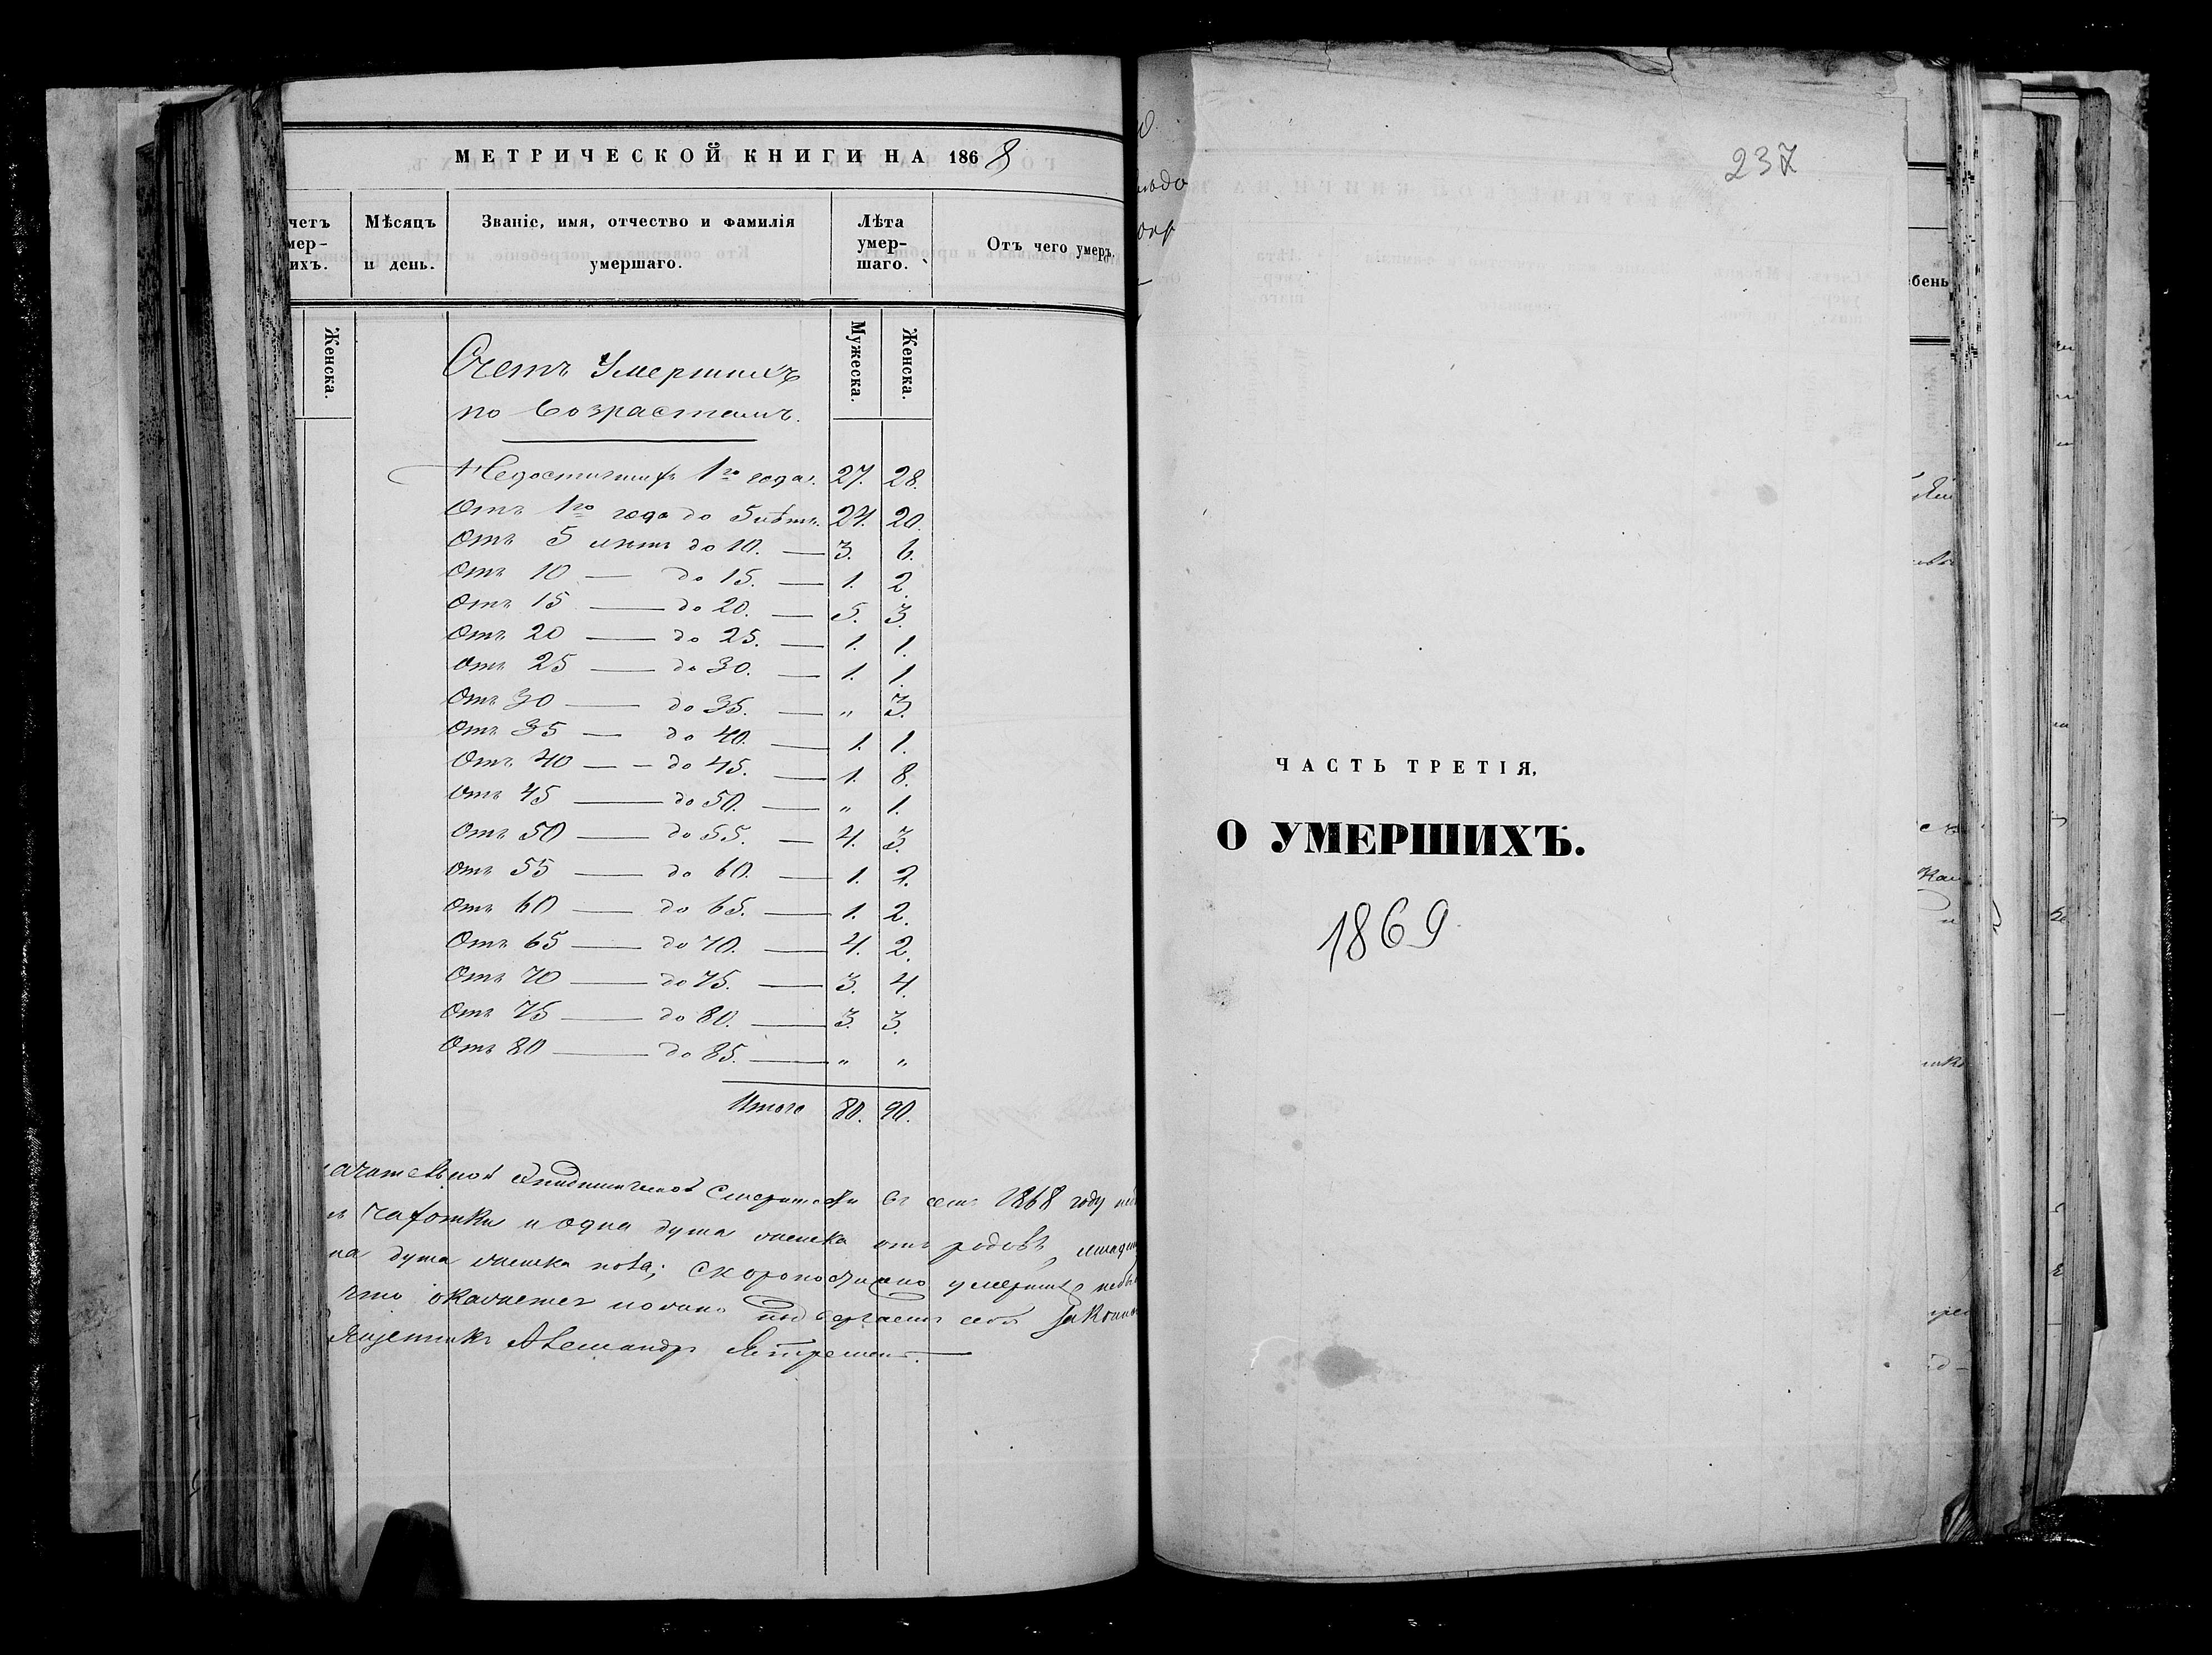 МЕТРИЧЕСКОЙ КНИГИ НА 1868
четъ
мер-
ихъ.
Мѣсяцъ
и день.
Званіе, имя, отчество и фамилія
умершаго.
Лѣта
умер-
шаго.
Отъ чего умеръ.
Женска.
Мужеска.
Женска.
Счетъ Умершихъ
по возрастамъ.
Недостигших 1го года. 27. 28.
Отъ 1го года до 5 лѣтъ. 24. 20.
Отъ 5 лѣтъ до 10. — 3. 6.
Отъ 10 — до 15. — 1. 2.
Отъ 15 — до 20. — 5. 3.
Отъ 20 — до 25. — 1. 1.
Отъ 25 — до 30. — 1. 1.
Отъ 30 — до 35. — „ 3.
Отъ 35 — до 40. — 1. 1.
Отъ 40 — до 45. — 1. 8.
Отъ 45 — до 50. — „ 1.
Отъ 50 — до 55. — 4. 3.
Отъ 55 — до 60. — 1. 2.
Отъ 60 — до 65. — 1. 2.
Отъ 65 — до 70. — 4. 2.
Отъ 70 — до 75. — 3. 4.
Отъ 75 — до 80. — 3. 3.
Отъ 80 — до 85. — „ „
Итого 80. 90.
смертности въ семъ 1868 году
чахотки и одна душа отъ родовъ
душа пола; скоропостижно
что подвергаетъ себя
Александръ
237
ЧАСТЬ ТРЕТІЯ.
О УМЕРШИХЪ.
1869
бень